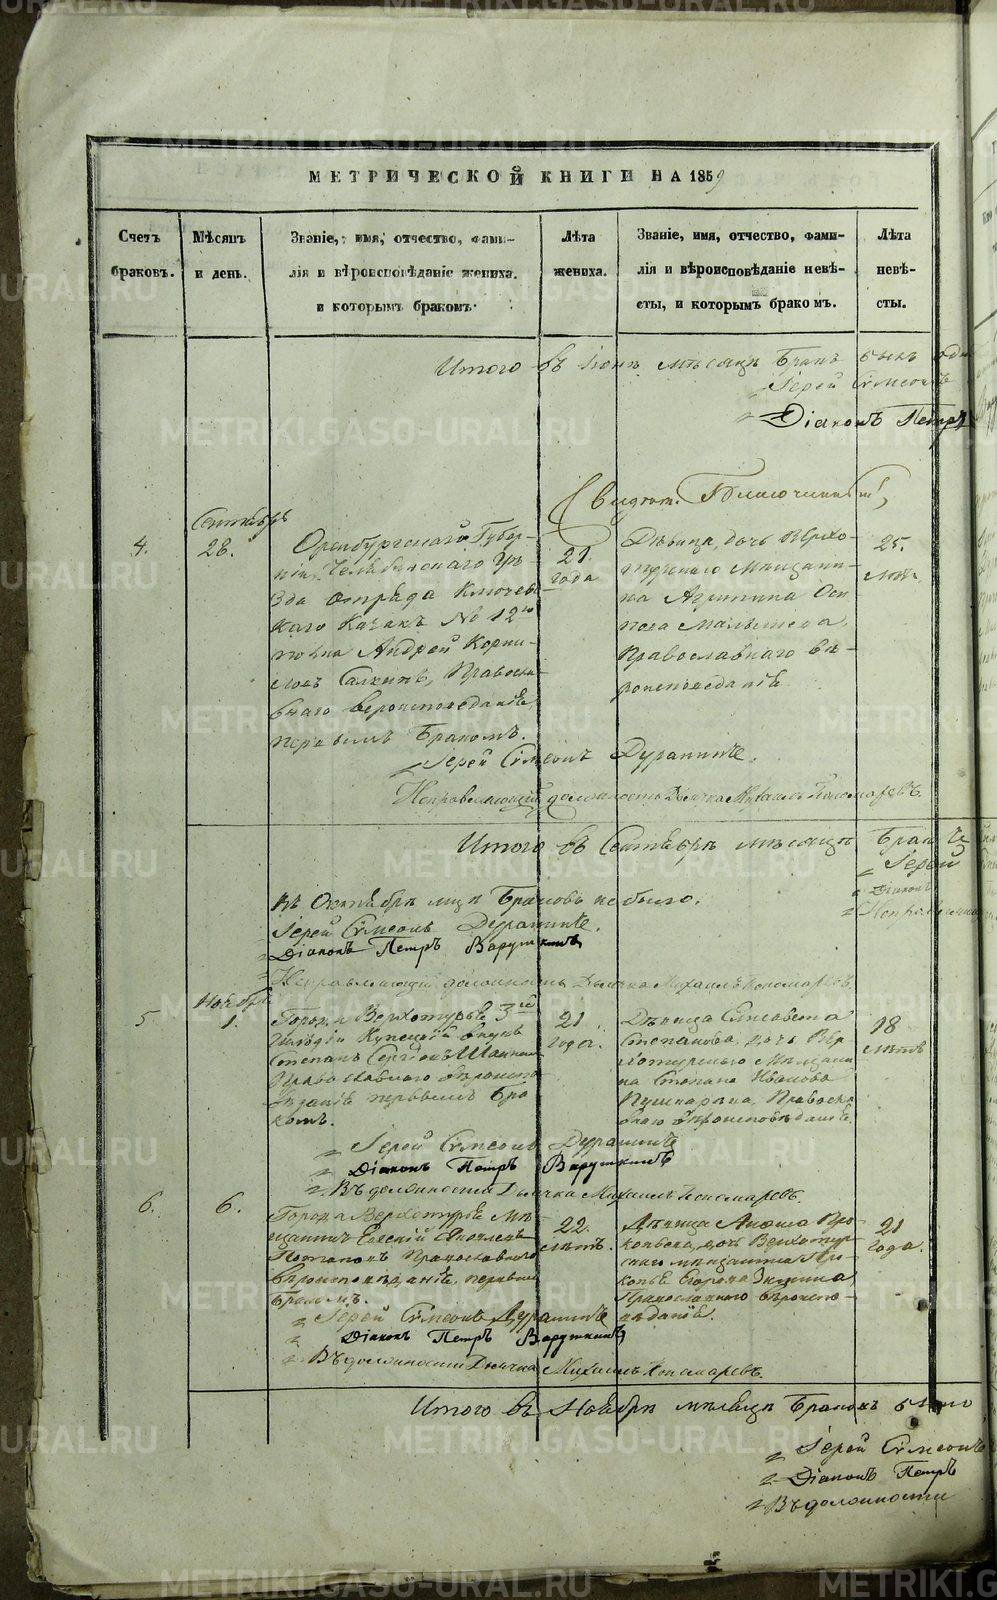 МЕТРИЧЕСКОЙ КНИГИ НА 1859
Счетъ
браковъ.
Мѣсяцъ
и день.
Званіе, имя, отчество, фами-
лія и вѣроисповѣданіе жениха.
и которымъ бракомъ
Лѣта
жениха.
Званіе, имя, отчество, фами-
лія и вѣроисповѣданіе невѣ-
сты, и которымъ бракомъ.
Лѣта
невѣ-
сты.
Итого въ мѣсяцѣ Бракъ былъ
Іерей Сѵмеонъ
Діаконъ Петръ
Сентябрь
4.
28.
Оренбургской Губер-
ніи, Челябинскаго Уѣ-
зда отряда Ключев
каго Казакъ № 12го
полка Андрей Корни-
ловъ Православ
наго вероисповеданія
первымъ Бракомъ.
21
года
Дѣвица, дочь Верхо-
турскаго Мещани-
на
Православнаго вѣ-
роисповеданія
25.
лѣтъ
Іерей Сѵмеонъ Дурапинъ.
Исправляющій должность Дьячка Михаилъ Пономаревъ.
Итого въ Сентябрѣ мѣсяцѣ Бракъ
Іерей
Діаконъ
Въ Октябрѣ Браковъ не было.
Іерей Сѵмеонъ Дурапинъ.
Діаконъ Петръ Варушкинъ
Исправляющій должность Дьячка Михаилъ Пономаревъ.
Ноябрь
5
1.
Города Верхотурья 3ей
Гильдіи Купецкій внукъ
Степанъ
Православнаго вѣроиспо
вѣданія первымъ Бра
комъ.
21
года.
Дѣвица Елисавета
Степанова, дочь Вер
хотурскаго Мѣщани
на Степана Иванова
Православ
наго вѣроисповѣданія.
18
лѣтъ
Іерей Сѵмеонъ Дурапинъ
Діаконъ Петръ Варушкинъ
Въ должности Дьячка Михаилъ Пономаревъ.
6.
6.
Города Верхотурья Мѣ
щанинъ
Православнаго
вѣроисповѣданія, первымъ
Бракомъ.
22.
лѣтъ.
Дѣвица Про
копьева, дочь Верхотур
скаго мѣщанина Про
копья
Православнаго вѣроиспо-
вѣданія.
21
года.
Іерей Сѵмеонъ Дурапинъ
Діаконъ Петръ Варушкинъ
Въ должности Дьячка Михаилъ Пономаревъ.
Итого въ Ноябрѣ мѣсяцѣ Браковъ было
Іерей Сѵмеонъ
Діаконъ Петръ
Въ должности
METRIKI.GASO-URAL.RU